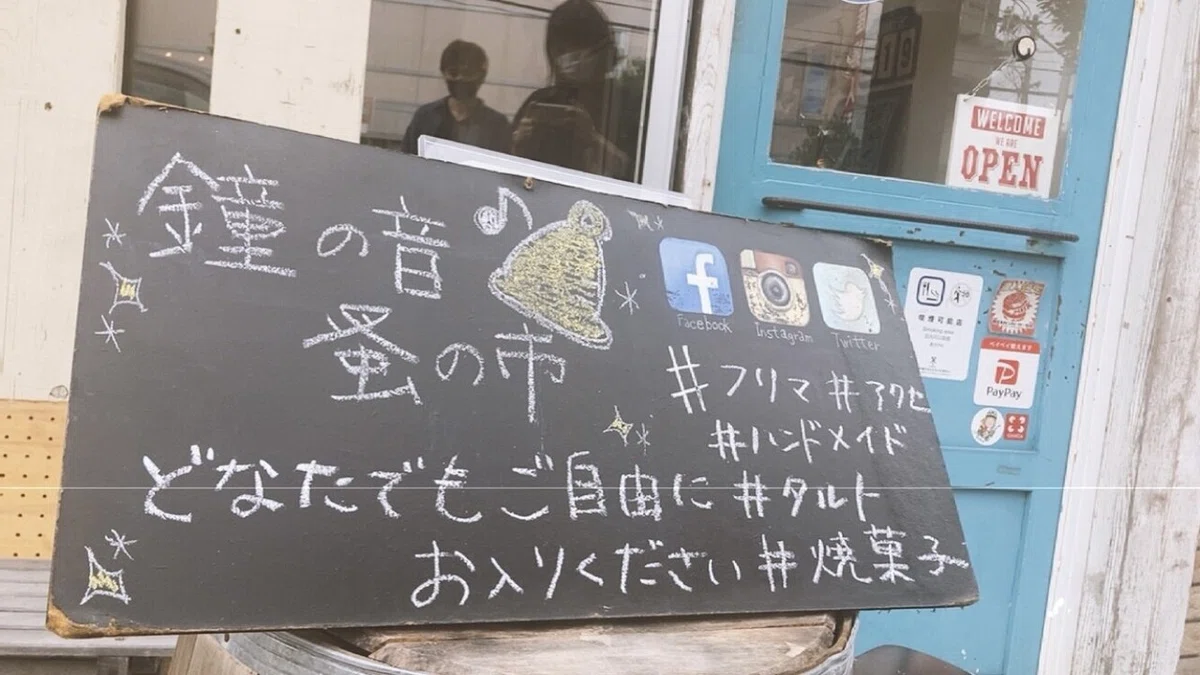 鐘の音
蚤の市
どなたでもご自由に
お入りください
Facebook
Instagram
Twitter
#フリマ #アクセ
#ハンドメイド
#タルト
#焼菓子
19
WELCOME
WE ARE
OPEN
喫煙可能店
PayPay